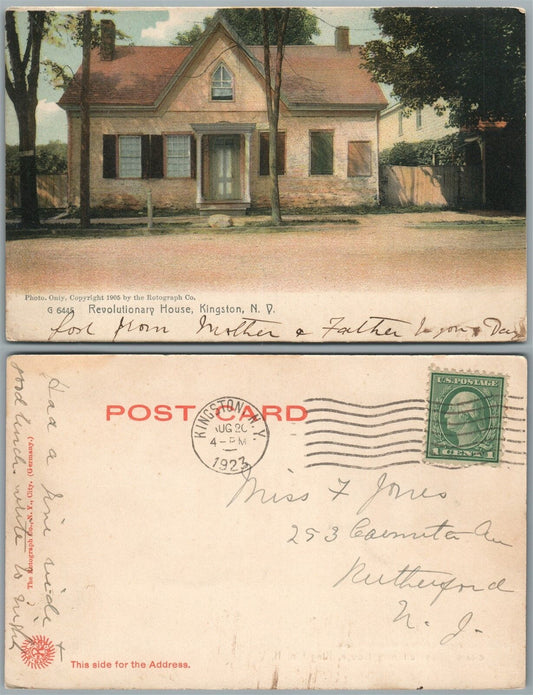 Photo. Only. Copyright 1905 by the Rotograph Co.
G 6445 Revolutionary House, Kingston, N. Y.
from Mother & Father
POST CARD
KINGSTON, N.Y.
AUG 20
4-PM
1923
U.S. POSTAGE
1 CENT 1
Miss F Jones
253 Ave
Rutherford
N. J.
Had a fine ride &
good lunch. write to night
The Rotograph Co., N. Y., City. (Germany.)
This side for the Address.